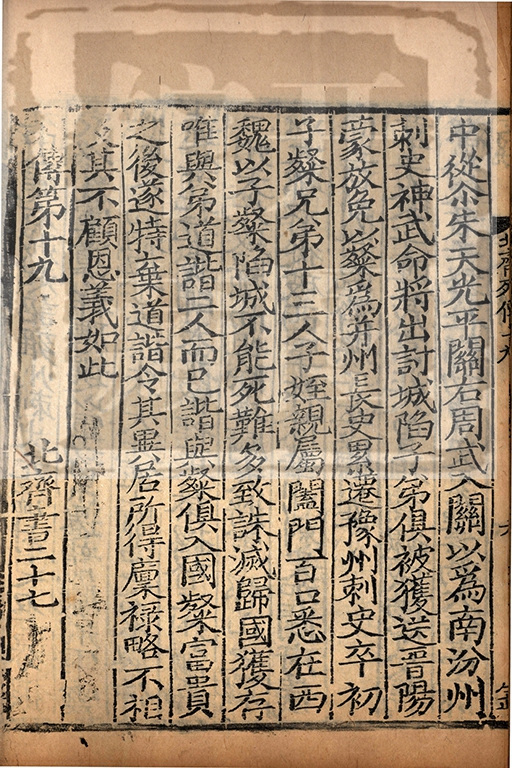 中從尒朱天光平關右周武入關以為南汾州
刺史神武命將出討城陷子弟俱被獲送晉陽
蒙放免以粲為并州長史累遷豫州刺史卒初
子粲兄弟十三人子姪親屬闔門百口悉在西
魏以子粲陷城不能死難多致誅滅歸國獲存
唯與弟道諧二人而已諧與粲俱入國粲富貴
之後遂特棄道諧令其異居所得廩禄略不相
及其不顧恩義如此
傳第十九 北齊書二十七